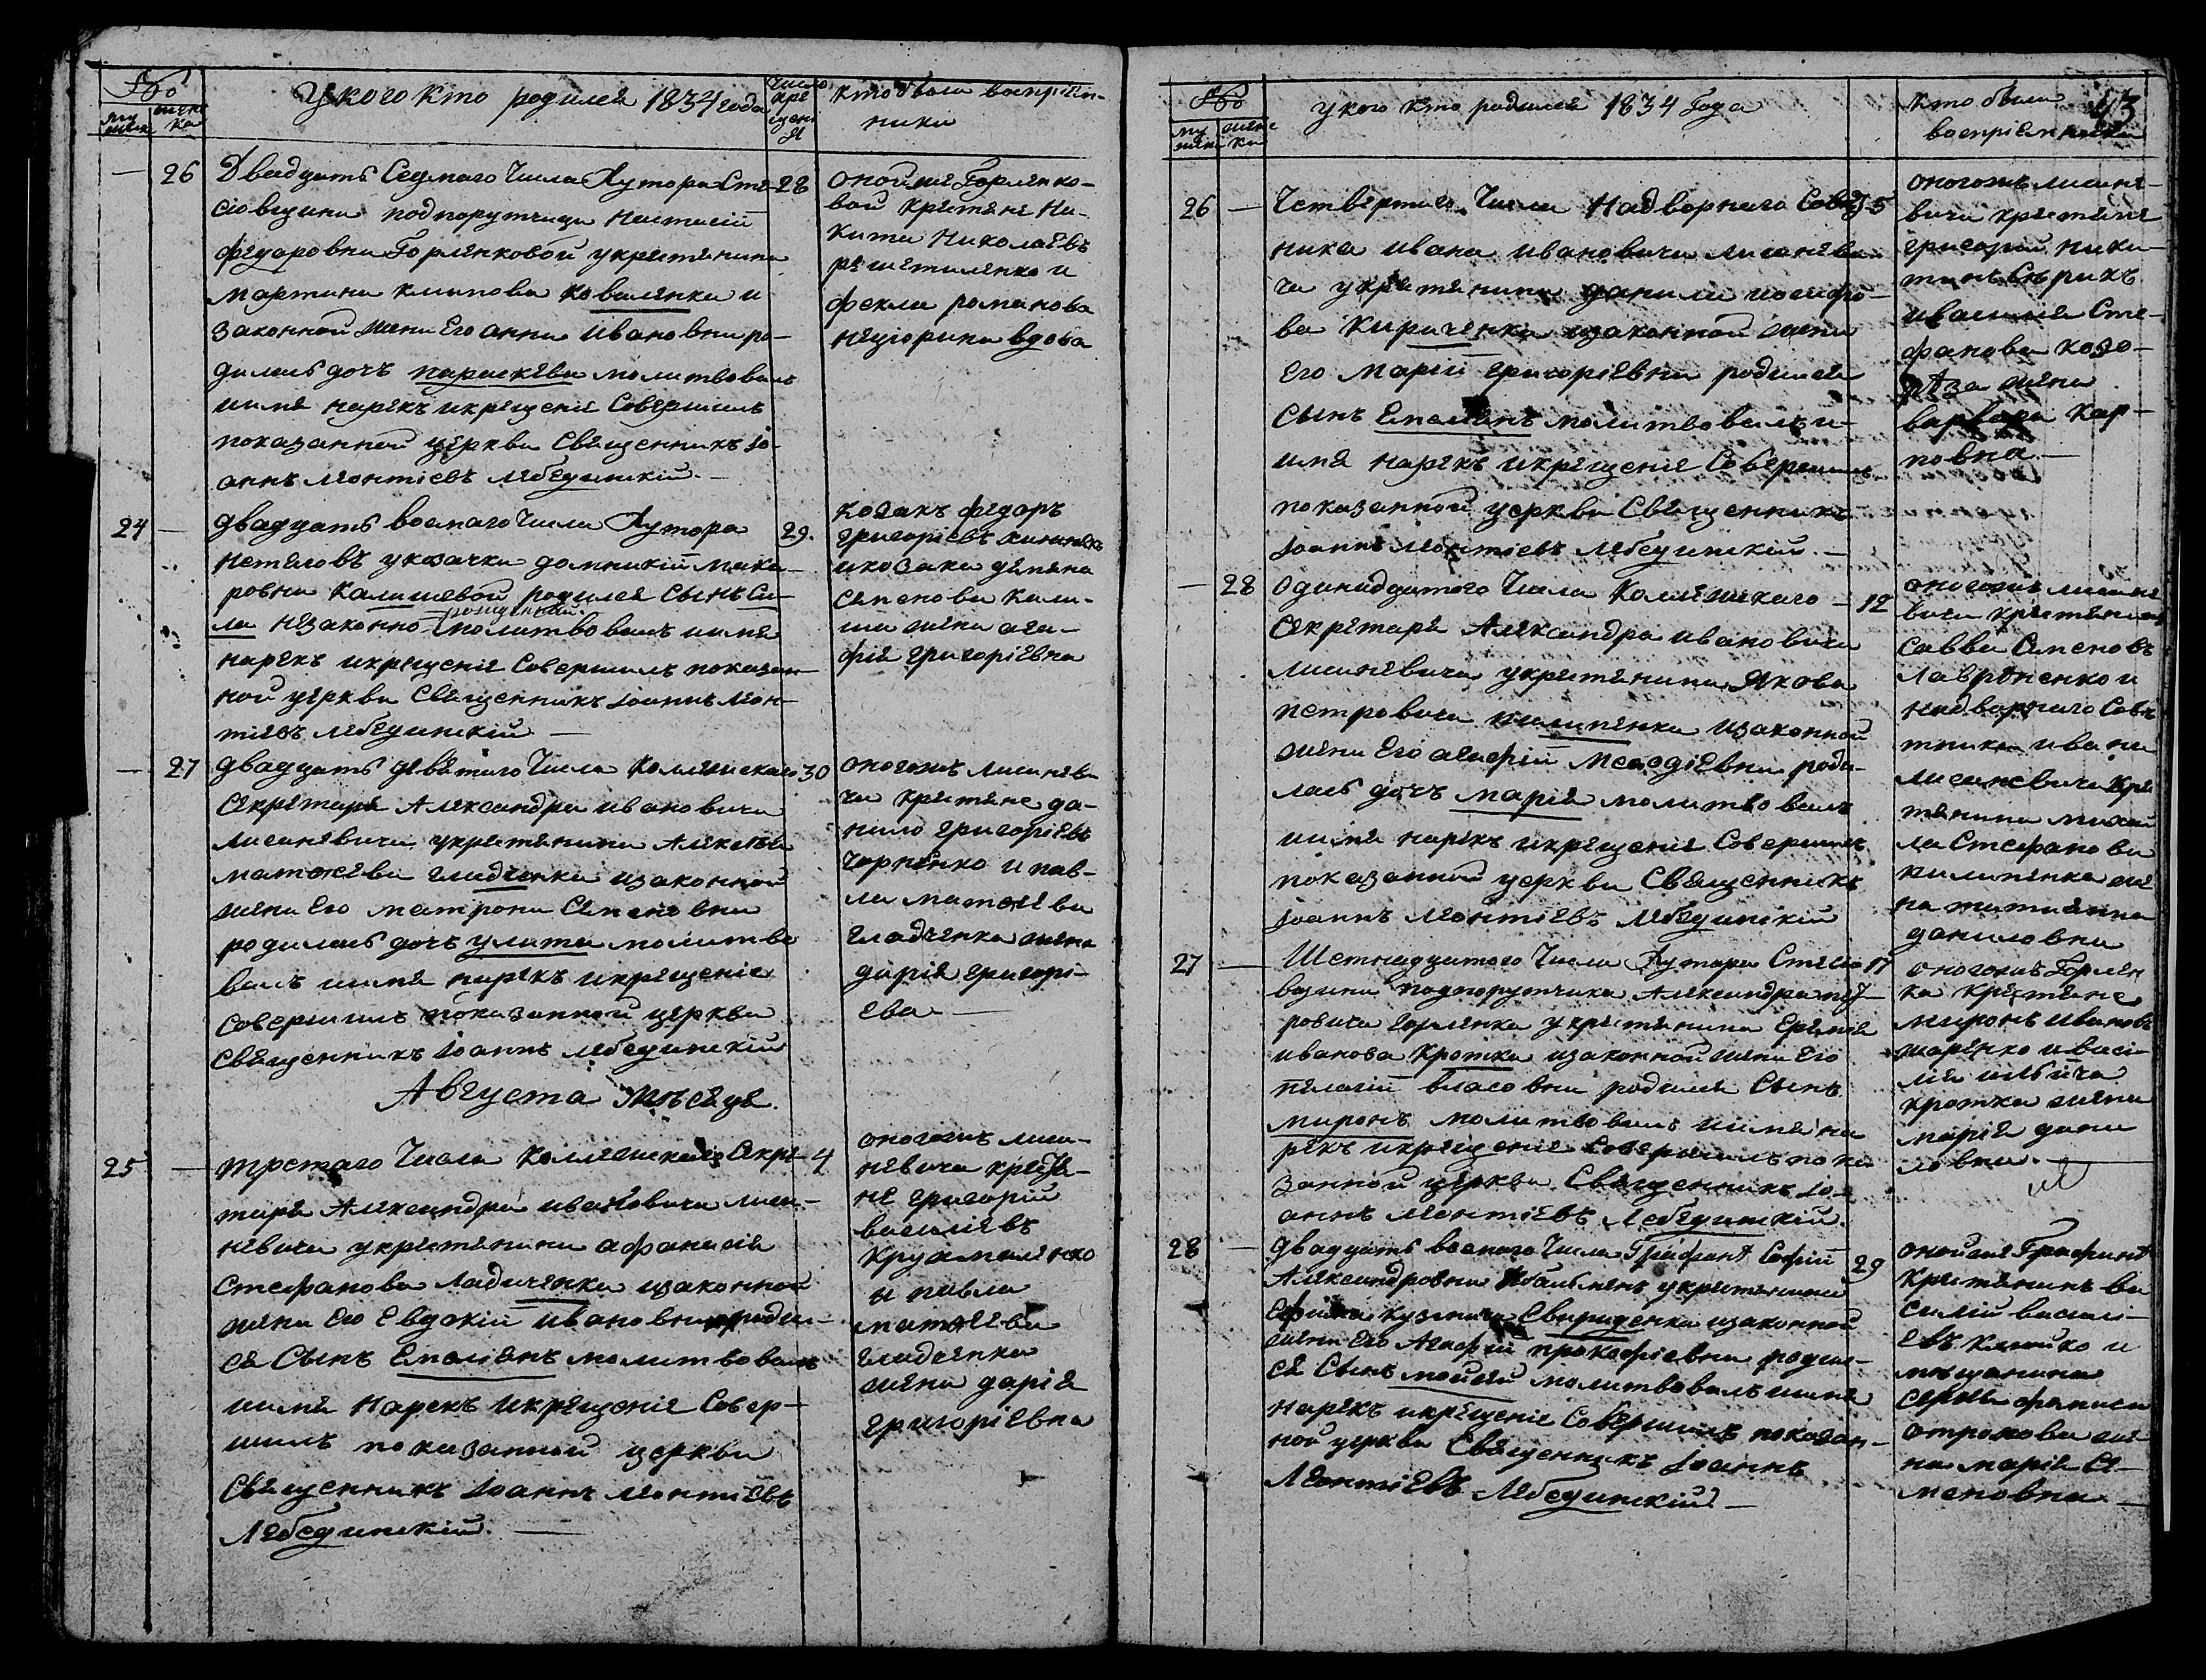 №
му
жеска
женс
ка
У кого кто родился 1834 года
число
кре
щен
я
кто были воспріем-
ники
26
Двадцать Седмаго Числа Хутора Сте-
28
сіовщини подпорутчици Настасіи
Федоровни Горленковой укрестянина
Мартина Климова Коваленка и
законной жени Его анни ивановни ро-
дилась дочь параскева молитвовалъ
имя нарекъ икрещеніе Совершилъ
показанной церкви Священникъ Іо-
аннъ Леонтіевъ Лебединскій. —
оной же Горленко-
вой крестяне Ни-
кита Николаевъ
решетиленко и
фекла романова
вдова
24 —
двадцать восмаго Числа Хутора
29.
Нетяговъ указачки домникіи мака-
ровни Калишевой родился Сынъ Си-
ла незаконно рожденный молитвовалъ имя
нарекъ икрещеніе Совершилъ показан-
ной церкви Священникъ Іоаннъ Леон-
тіевъ Лебединскій —
козакъ федоръ
григоріевъ
икозака демяна
Семенова Кали-
ша жена ага-
фія григоріевна
— 27
двадцать девятаго Числа Колежскаго
30
Секретаря Александра ивановича
Лисаневича укрестянина Алексея
матвеева гладченка изаконной
жени Его матрони Семеновни
родилась дочь улита молитво
валъ имя нарекъ икрещеніе
Совершилъ показанной церкви
Священникъ Іоаннъ Лебединскій
оногожъ Лисанев-
ча крестяне да-
нило григоріевъ
Чорненко и пав-
ла матвеева
гладченка жена
дарія григорі-
ева —
Августа Месяца.
25 —
третаго Числа Коллежскаго Секре-
4
таря Александра ивановича Лиса-
невича укрестянина афанасія
Стефанова Ладиченка изаконной
жени Его Евдокіи ивановни родил-
ся Сынъ Емеліянъ молитвовалъ
имя нарекъ икрещеніе Совер-
шилъ показанной церкви
Священникъ Іоаннъ Леонтіевъ
Лебединскій. —
оногожъ лиса-
невича крестя-
не григорій
василіевъ
и павла
матвеева
гладченка
жена дарія
григоріевна
№
му
жеска
женс
ка
у кого кто родился 1834 Года
кто были
воспріемники
43
26 —
Четвертаго Числа Надворнаго Совет-
5
ника ивана ивановича лисаневи-
ча укрестянина данила іосифо-
ва Кириченка изаконной жени
его Маріи григоріевни родился
Сынъ Емелианъ молитвовалъ и-
имя нарекъ икрещеніе Совершилъ
показанной церкви Священникъ
Іоаннъ Леонтіевъ Лебединскій. —
оногожъ лисане-
вича крестяне
григорій ники-
тинъ
ивасилія Сте-
фанова козо-
реза жена
варвара кар-
повна —
— 28
одинадцатого Числа Колежскаго —
12
Секретаря Александра ивановича
лисаневича укрестянина Якова
петровича пилипенка изаконной
жени Его агафіи Мефодіевни роди-
лась дочъ марія молитвовалъ
имя нарекъ икрещеніе Совершилъ
показанной церкви Священникъ
Іоаннъ Леонтіевъ Лебединскій
оногожъ лисане
вича крестянинъ
Савва Семеновъ
Лавроненко и
надворнаго Сове
тника ивана
лисаневича кре
тянина михай
ла Стефанова
пилипенка же
на татианна
даниловна
27 —
Шетнадцатого Числа Хутора Стесіо
17
вщини подпорутчика Александра пет-
ровича горленка укрестянина Еремея
иванова Кротка изаконной жени Его
пелагіи власовни родился Сынъ
миронъ молитвовалъ имя на
рекъ икрещеніе Совершилъ пока
занной церкви Священникъ Іо-
аннъ Леонтіевъ Лебединскій.
оногожъ Горлен
ка крестяне
миронъ ивановъ
ивасі-
лія
кротка жена
марія дани
ловна. —
28 —
двадцать восмаго Числа Графинѣ Софіи
29
Александровни укрестянина
Ефима кузмича Свириденка изаконной
жени Его Агафіи прокофіевни родил-
ся Сынъ мойсей молитвовалъ имя
нарекъ икрещеніе Совершилъ показан-
ной церкви Священникъ Іоаннъ
Леонтіевъ Лебединскій —
оной же Графинѣ
Крестянинъ ва
силій василі-
евъ и
мещанина
же
на марія Се-
меновна —